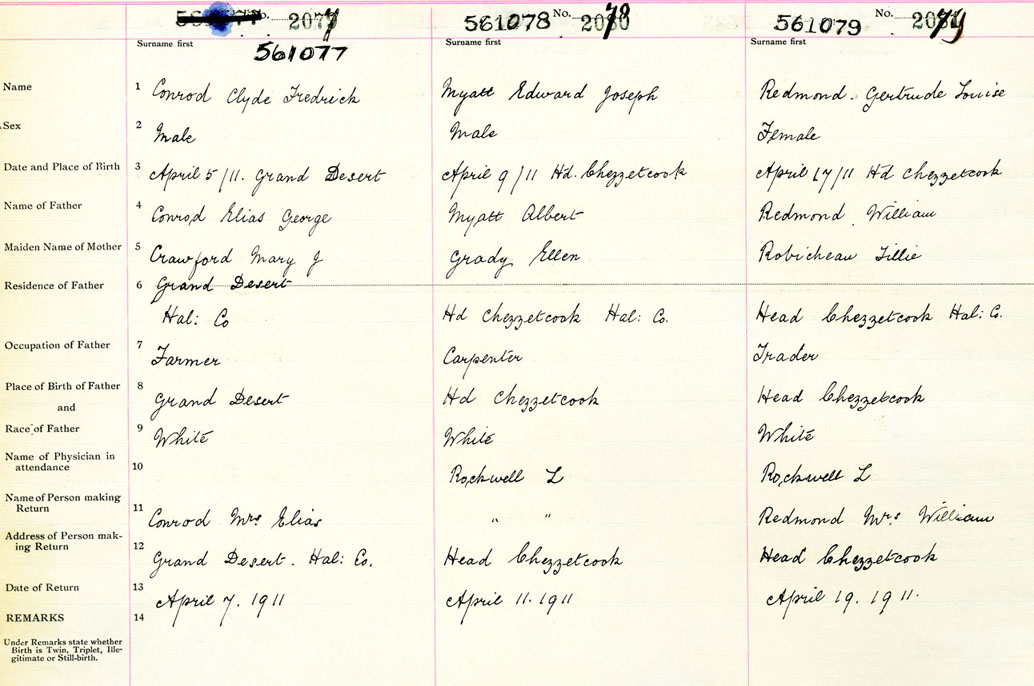 No. 2077 561078 No. 2080 78 561079 No. 79
Surname first Surname first Surname first
561077
Name 1 Conrod Clyde Fredrick Myatt Edward Joseph Redmond. Gertrude Louise
Sex 2 Male Male Female
Date and Place of Birth 3 April 5/11. Grand Desert April 9/11 Hd. Chezzetcook April 17/11 Hd Chezzetcook
Name of Father 4 Conrod Elias George Myatt Albert Redmond William
Maiden Name of Mother 5 Crawford Mary J Grady Ellen Robicheau Tillie
Residence of Father 6 Grand Desert
Hal: Co Hd Chezzetcook Hal: Co. Head Chezzetcook Hal: Co.
Occupation of Father 7 Farmer Carpenter Trader
Place of Birth of Father 8 Grand Desert Hd Chezzetcook Head Chezzetcook
and
Race of Father 9 White White White
Name of Physician in
attendance 10 Rockwell L Rockwell L
Name of Person making
Return 11 Conrod Mrs Elias " " Redmond Mrs William
Address of Person mak-
ing Return 12 Grand Desert. Hal: Co. Head Chezzetcook Head Chezzetcook
Date of Return 13 April 7. 1911 April 11. 1911 April 19. 1911.
REMARKS 14
Under Remarks state whether
Birth is Twin, Triplet, Ille-
gitimate or Still-birth.